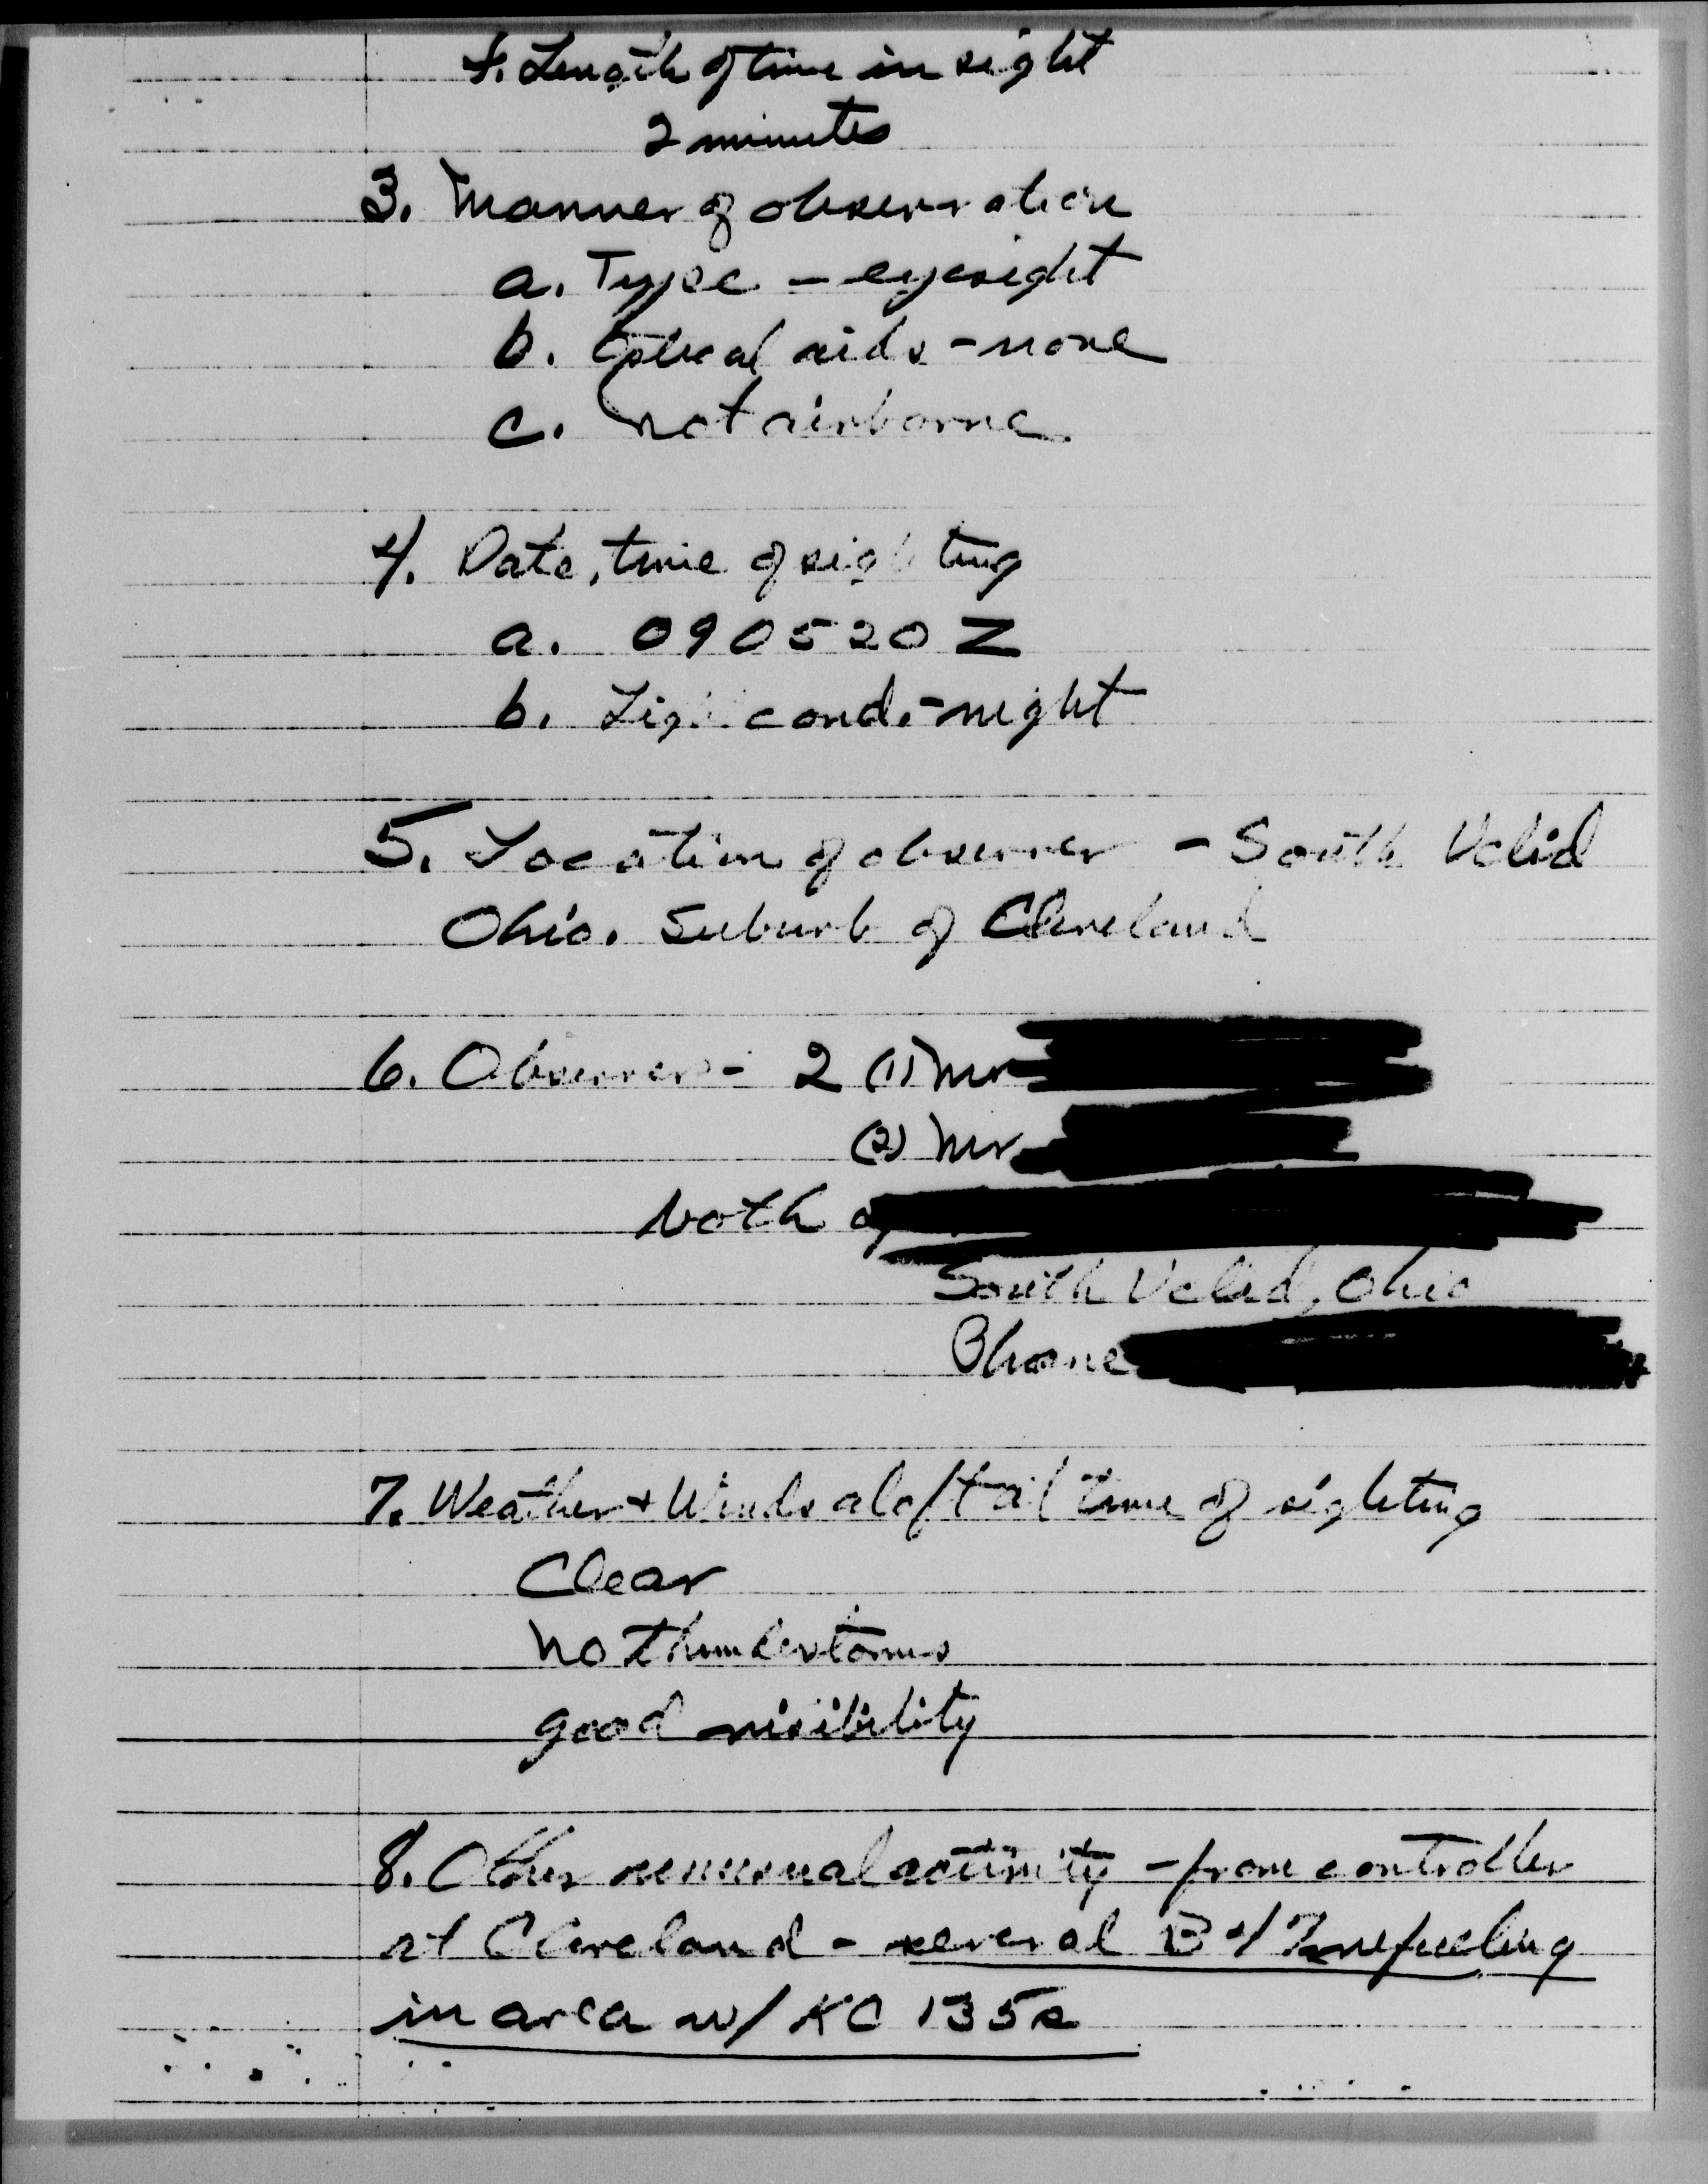 f. Length of time in sight
2 minutes
3. Manner of observation
a. Type - eyesight
b. Optical aids - none
c. not airborne
4. Date, time of sighting
a. 090520Z
b. Lig cond. - night
5. Location of observer - South Uclid
Ohio. Suburb of Cleveland
6. Observers - 2 (1) Mr
(2) Mr
both of
South Uclid, Ohio
Phone
7. Weather + Winds aloft at time of sighting
Clear
No thunderstorms
good visibility
8. Other unusual activity - from controller
at Cleveland - several B47 refueling
in area w/ KC 135s